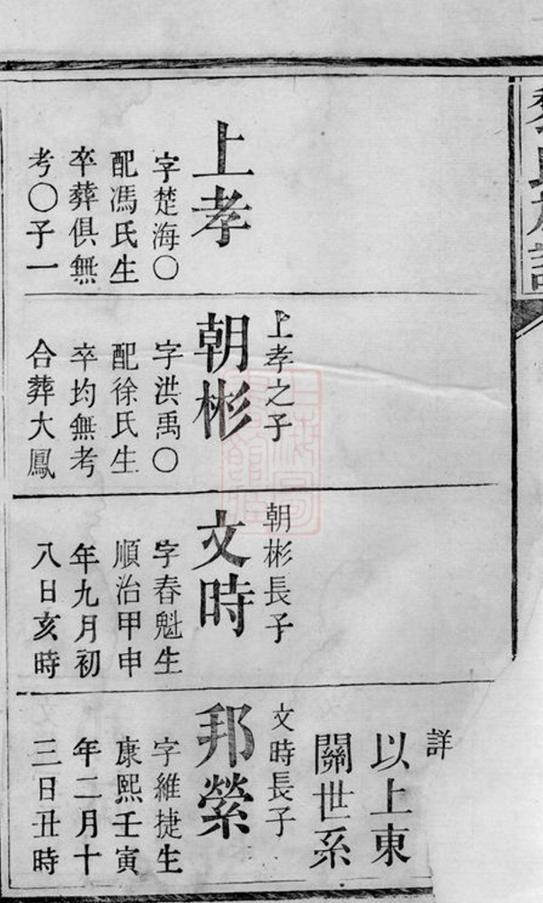 氏族譜
上孝
字楚海〇
配馮氏生
卒葬俱無
考〇子一
上孝之子
朝彬
字洪禹〇
配徐氏生
卒均無考
合葬大鳳
朝彬長子
文時
字春魁生
順治甲申
年九月初
八日亥時
詳
以上東
關世系
文時長子
邦縈
字維捷生
康熙壬寅
年二月十
三日丑時